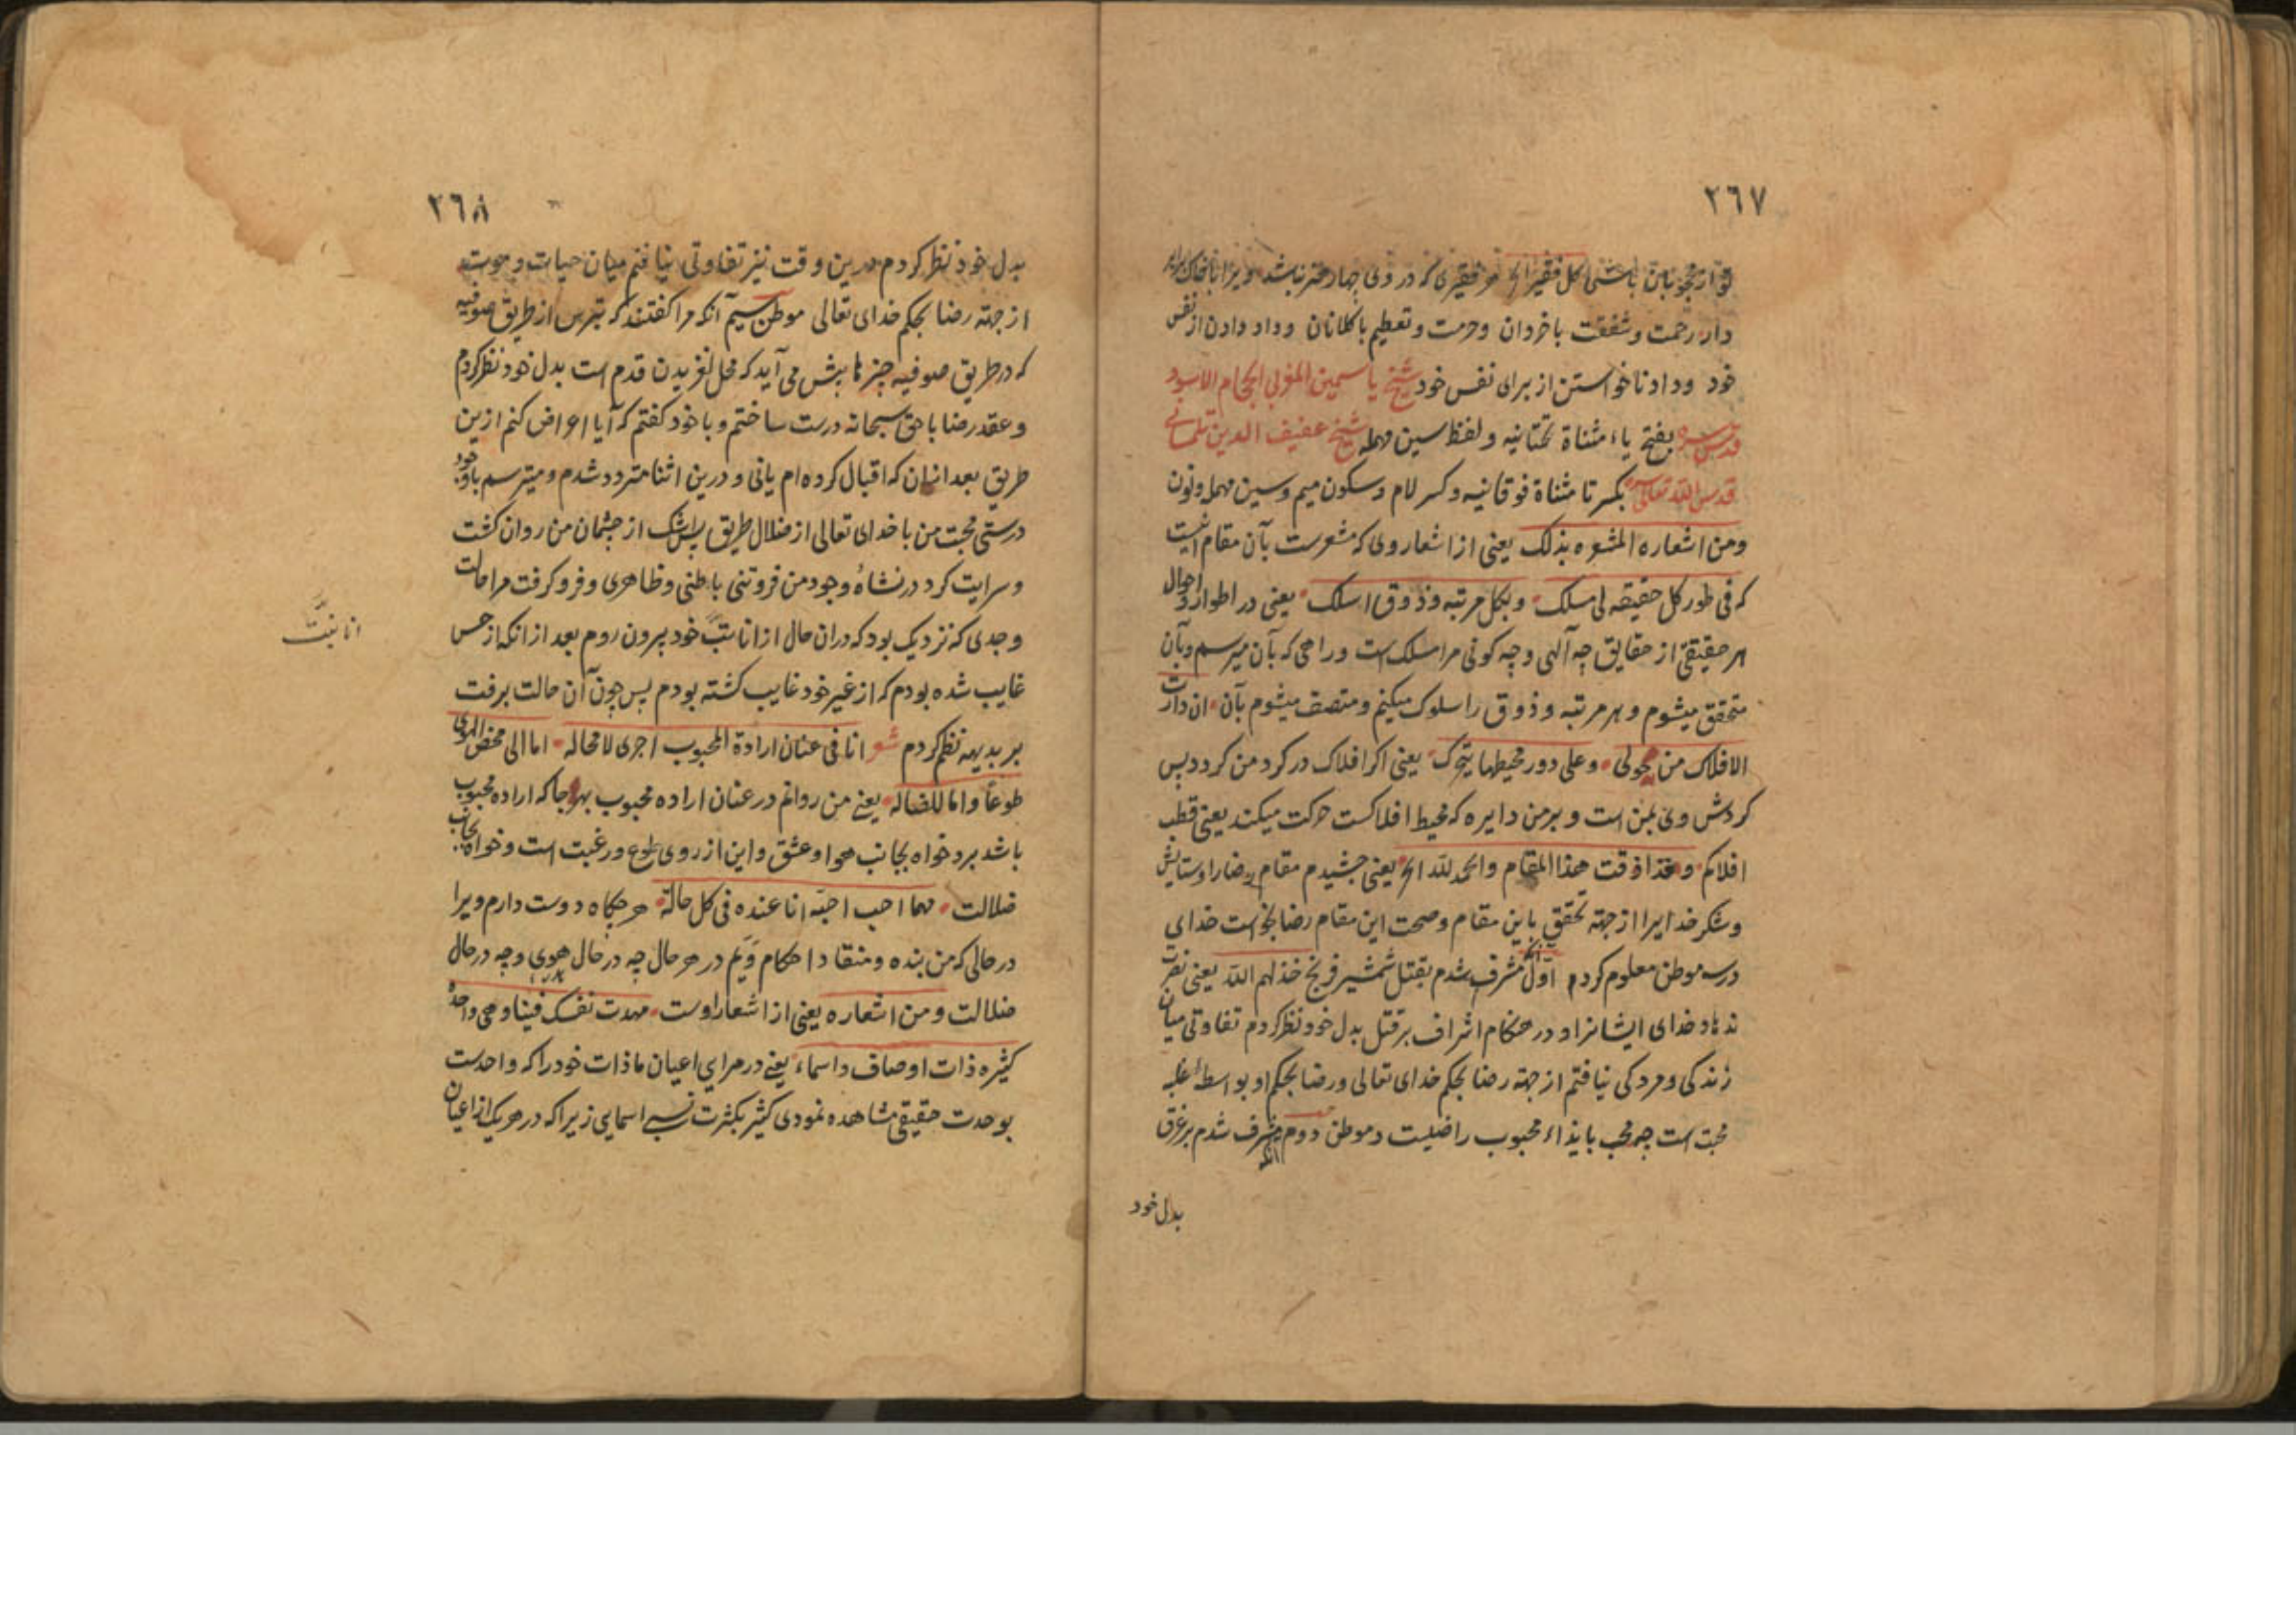 ٢٦٧
تو از محجوبان باشی کل فقیر الخ هر فقیری که در وی چهار هنر نباشد ویرا با خاک برابر
دار رحمت و شفقت با خردان و حرمت و تعظیم با کلانان و داد دادن از نفس
خود و داد ناخواستن از برای نفس خود شیخ یاسمین المغربی الحجام الاسود
قدس سره بفتح یاء مثناة تحتانیه و لفظ سین مهمله شیخ عفیف الدین تلمسانی
قدس الله تعالی سره بکسر تا مثناة فوقانیه و کسر لام و سکون میم و سین مهمله و نون
ومن اشعاره المشعره بذلک یعنی از اشعار وی که مشعرست بآن مقام اینست
که فی طور کل حقیقه لی مسلک وبکل مرتبه وذوق اسلک یعنی در اطوار و احوال
هر حقیقتی از حقایق چه آلهی و چه کونی مرا مسلک است و راهی که بآن میرسم و بآن
متحقق میشوم و بهر مرتبه و ذوق را سلوک میکنم و متصف میشوم بآن ان دارت
الافلاک من حولی وعلی دور محیطها یتحرک یعنی اکر افلاک در کرد من کردد پس
کردش وی بمن است و بر من دایره که محیط افلاکست حرکت میکند یعنی قطب
افلاکم و هذا ذقت هذا المقام والحمد لله الخ یعنی چشیدم مقام رضا را و ستایش
و شکر خدایرا از جهة تحقق باین مقام و صحت این مقام رضا بخواست خدای
در سه موطن معلوم کردم اول آنکه مشرف شدم بقتل شمشیر فرنج خذلهم الله یعنی نصرت
ندهاد خدای ایشانرا و در هنکام اشراف بر قتل بدل خود نظر کردم تفاوتی میان
زندکی و مردکی نیافتم از جهة رضا بحکم خدای تعالی و رضا بحکم او بواسطهٔ غلبه
محبت است چه محب بایذاء محبوب راضیست و موطن دوم آنکه مشرف شدم بر غرق
بدل خود
٢٦٨
بدل خود نظر کردم درین وقت نیز تفاوتی نیافتم میان حیات و موت
از جهة رضا بحکم خدای تعالی موطن سیم آنکه مرا کفتند که بترس از طریق صوفیه
که در طریق صوفیه چیزها پیش می آید که محل لغزیدن قدم است بدل خود نظر کردم
و عقد رضا با حق سبحانه درست ساختم و با خود کفتم که آیا اعراض کنم ازین
طریق بعد ازان که اقبال کرده ام یانی و درین اثنا متردد شدم و میترسم با وجود
درستی محبت من با خدای تعالی از ضلال طریق پس اشک از چشمان من روان کشت
و سرایت کرد در نشاهٔ وجود من فروتنی باطنی و ظاهری و فروکرفت مرا حالت
وجدی که نزدیک بود که دران حال از انانیت خود بیرون روم بعد از انکه از حس
انانیت
غایب شده بودم که از غیر خود غایب کشته بودم پس چون آن حالت برفت
بر بدیهه نظم کردم شعر انا فی عنان ارادة المحبوب اجری لا محاله اما الی محض الهوی
طوعا واما للضاله یعنی من روانم در عنان اراده محبوب بهر جا که اراده محبوب
باشد برد خواه بجانب هوا و عشق و این از روی طوع و رغبت است و خواه بجانب
ضلالت مهما احب احبه انا عنده فی کل حالة هر جکاه دوست دارم ویرا
در حالی که من بنده و منقاد احکام ویم در هر حال چه در حال هوی و چه در حال
ضلالت ومن اشعاره یعنی از اشعار اوست شهدت نفسک فینا وهی واحدة
کثیره ذات اوصاف واسماء یعنی در مرایای اعیان ما ذات خود را که واحدست
بوحدت حقیقی مشاهده نمودی کثیر بکثرت نسبی اسمایی زیرا که در هر یک از اعیان